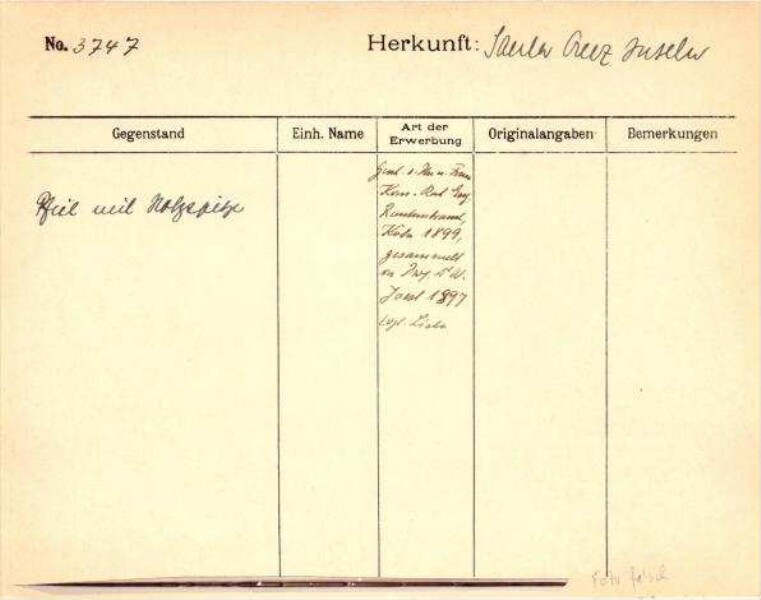 No. 3747 Herkunft: Santa Cruz Inseln
Gegenstand Einh. Name Art der Erwerbung Originalangaben Bemerkungen
Pfeil mit Holzspitze
Gesch. v. Hrn u. Frau
Kom. Rat Eug
Rautenstrauch,
Köln 1899,
gesammelt
von Prof. Dr W.
Joest 1897
vgl. Liste
Foto falsch